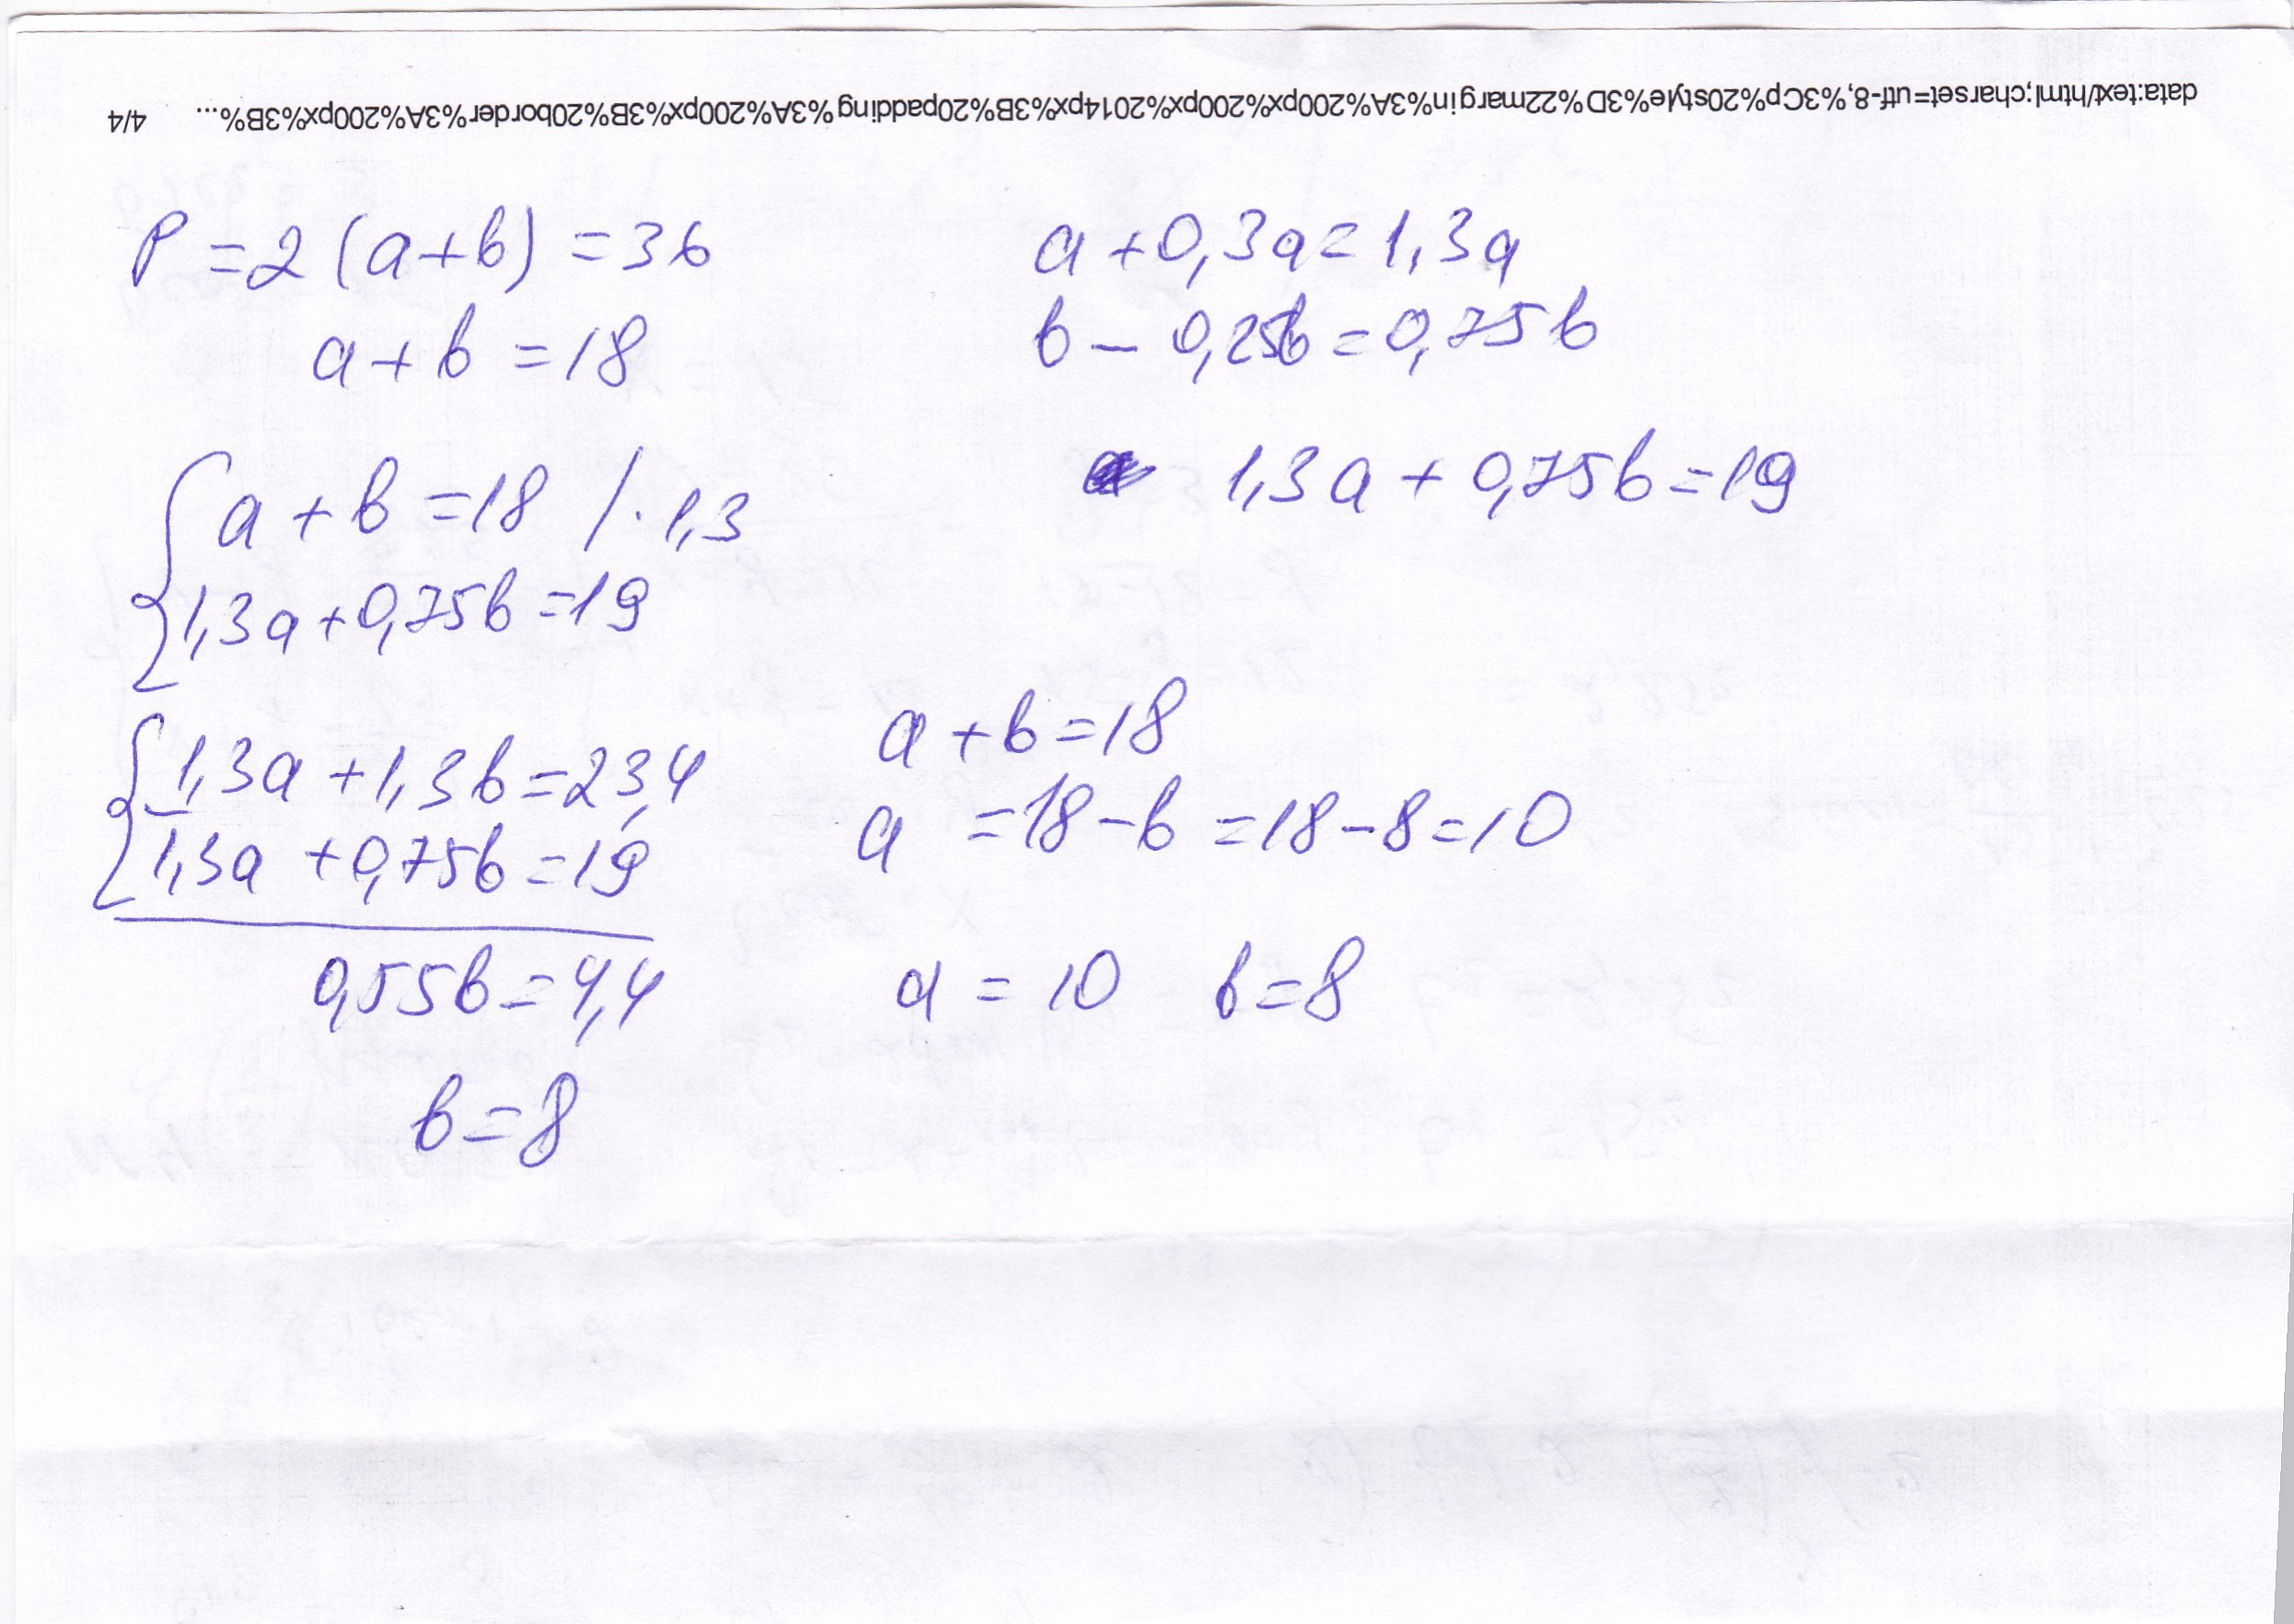 data:text/html;charset=utf-8,%3Cp%20style%3D%22margin%3A%200px%200px%2014px%3B%20padding%3A%200px%3B%20border%3A%200px%3B%... 4/4
P = 2 (a + b) = 36
a + b = 18
a + 0,3a = 1,3a
b - 0,25b = 0,75b
1,3a + 0,75b = 19
a + b = 18 / · 1,3
1,3a + 0,75b = 19
1,3a + 1,3b = 23,4
–
1,3a + 0,75b = 19
0,55b = 4,4
b = 8
a + b = 18
a = 18 - b = 18 - 8 = 10
a = 10 b = 8